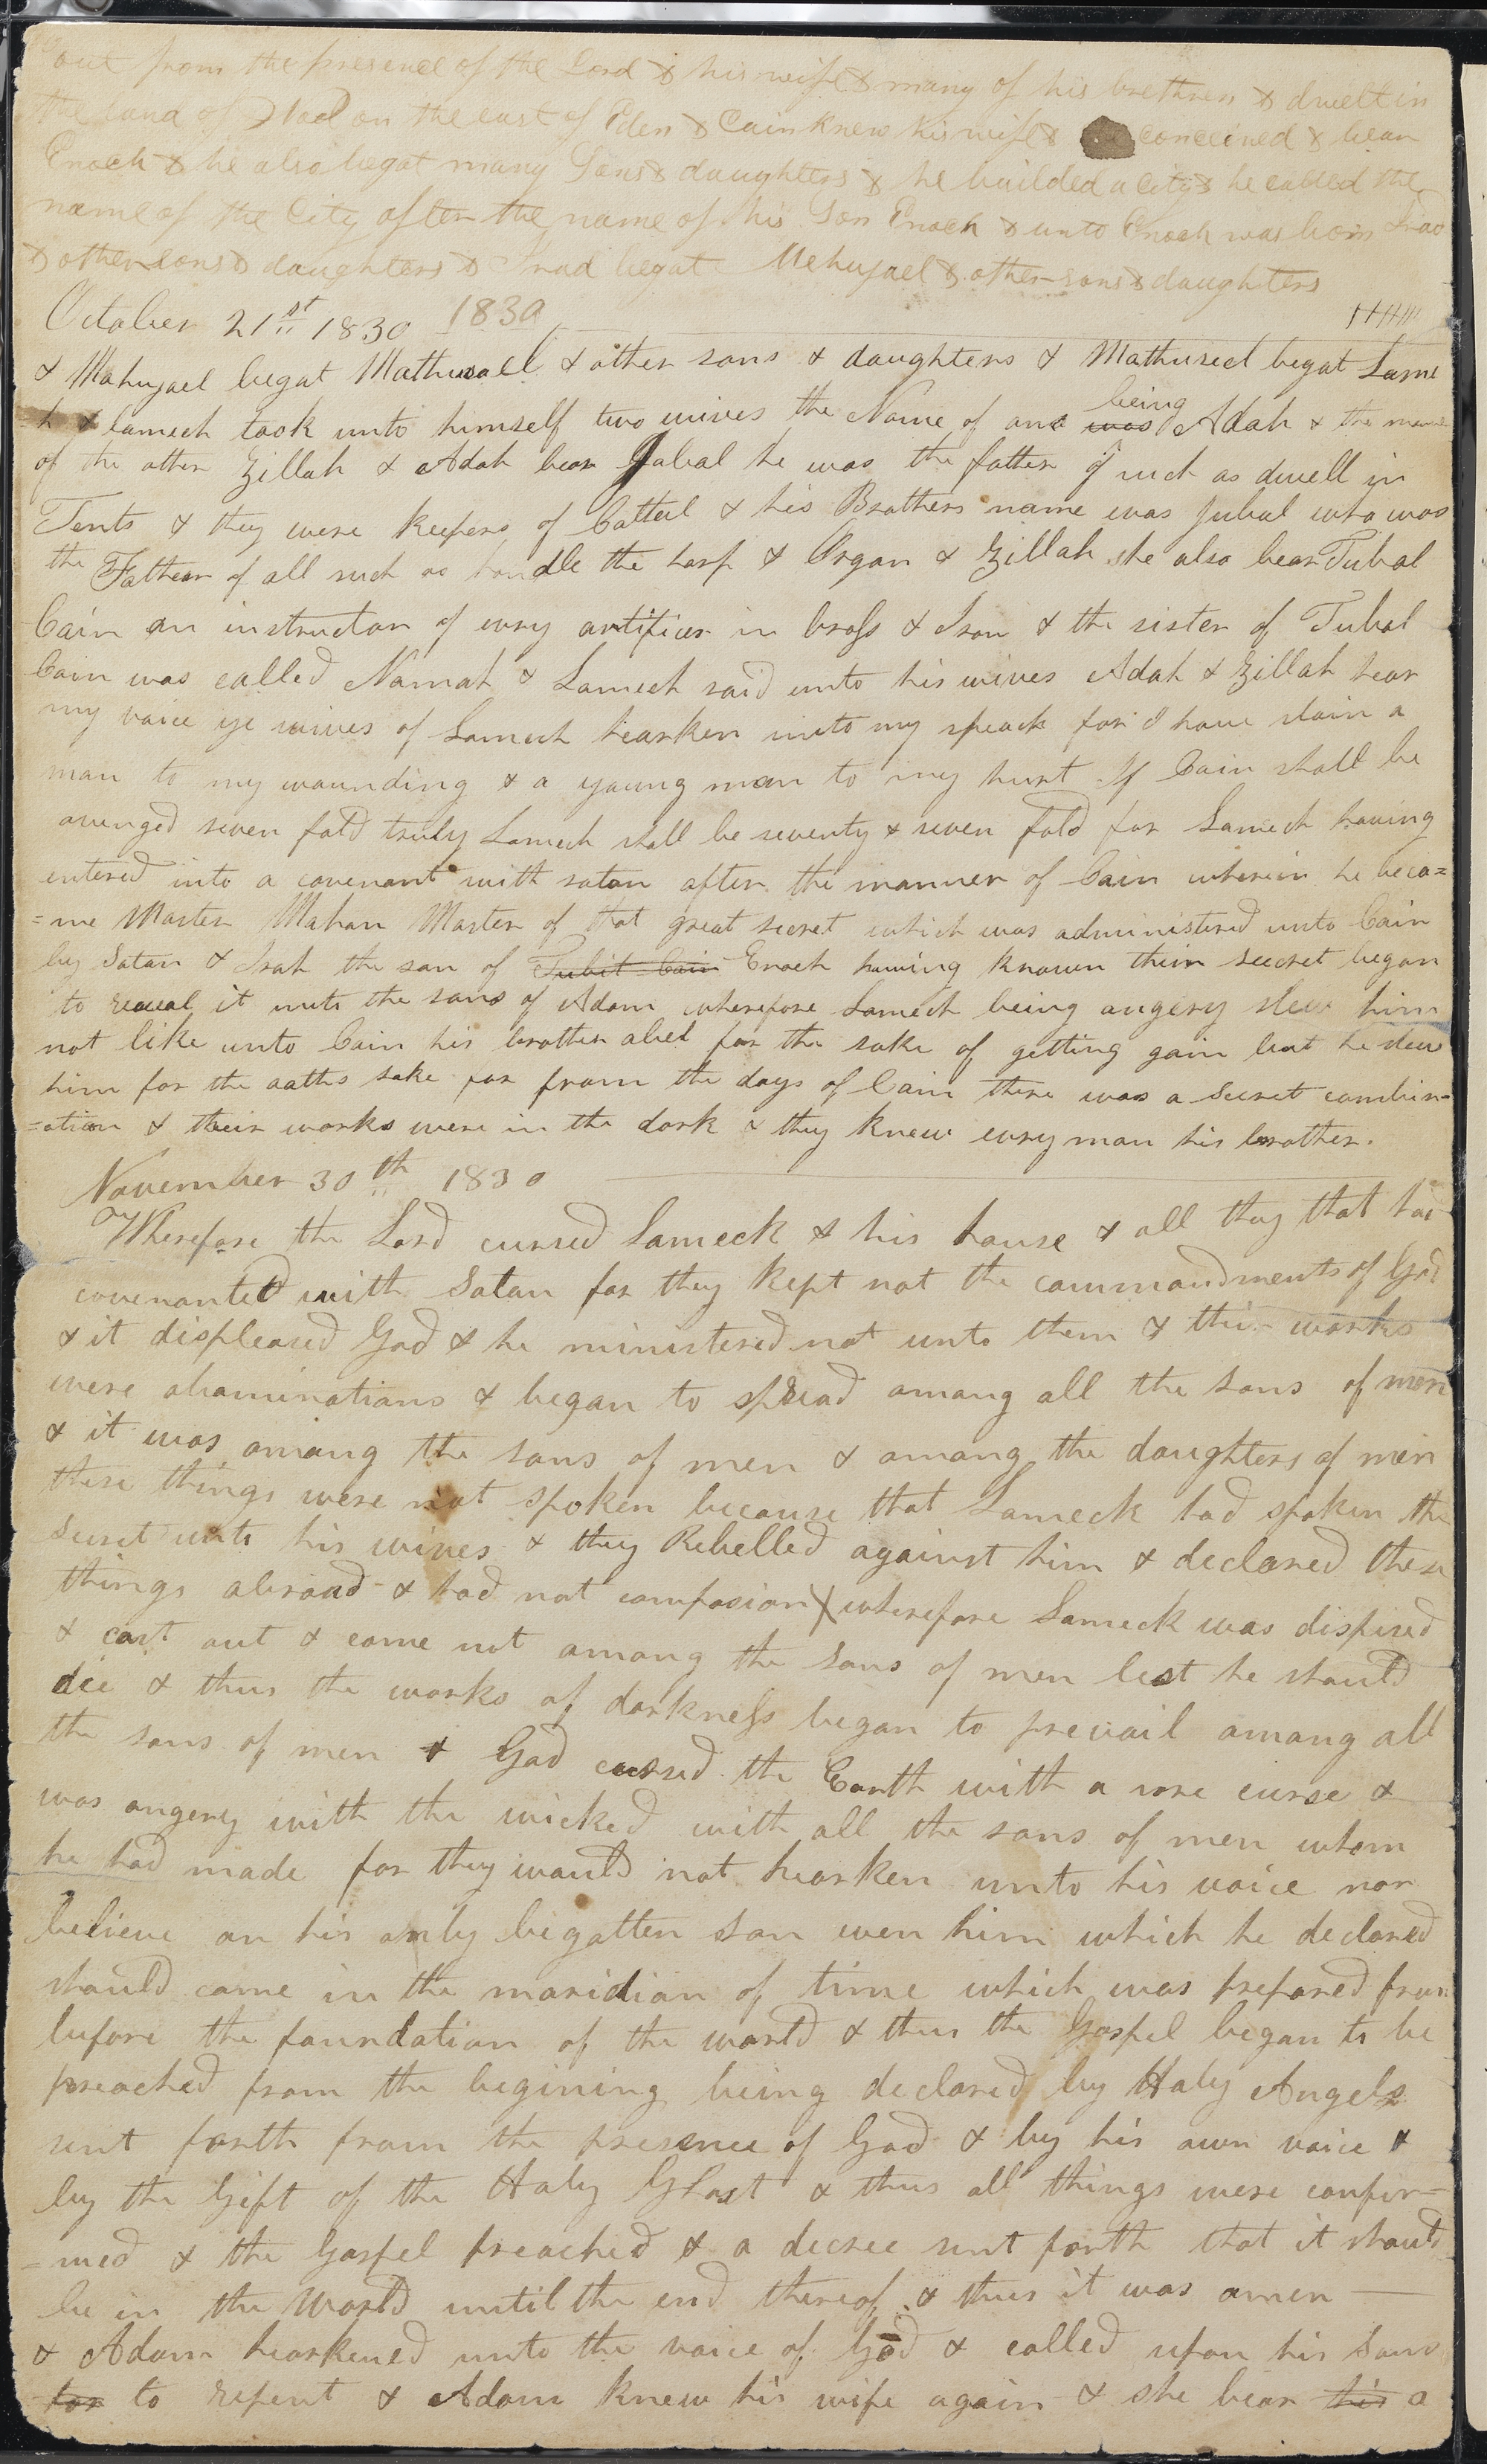 out from the presence of the Lord & his wife & many of his brethren & dwelt in
the land of Nod on the east of Eden & Cain knew his wife & conceived & bear
Enoch & he also begat many Sons & daughters & he builded a City & he called the
name of the City after the name of his Son Enoch & unto Enoch was born Irad
& other sons & daughters & Irad begat Mehujael & other sons & daughters
October 21st 1830 1830
& Mahujael begat Mathusael & other sons & daughters & Mathusael begat Lame
h & lamech took unto himself two wives the Name of one was being Adah & the name
of the other Zillah & Adah bear Jabal he was the father of such as dwell in
Tents & they were keepers of Cattel & his Brothers name was Jubal who was
the Father of all such as handle the harp & Organ & Zillah she also bear Tubal
Cain an instructor of evry artificer in brass & Iron & the sister of Tubal
Cain was called Namah & Lamech said unto his wives Adah & Zillah hear
my voice ye wives of Lamech hearken unto my speach for I have slain a
man to my wounding & a young man to my hurt If Cain shall be
avenged seven fold truly Lamech shall be seventy & seven fold for Lamech having
entered into a covenant with satan after the manner of Cain wherein he beca=
=me Master Mahan Master of that great secret which was administered unto Cain
by Satan & Irah the son of Tubit Cain Enoch having known their seecret began
to reveal it unto the sons of Adam wherefore Lamech being angery slew him
not like unto Cain his brother abel for the sake of getting gain but he slew
him for the oaths sake for from the days of Cain there was a secret combin=
=ation & their works were in the dark & they knew evry man his brother.
November 30th 1830
Wherefore the Lord cursed Lameck & his house & all they that had
covenanted with Satan for they kept not the commandments of God
& it displeased God & he ministered not unto them & their works
were abominations & began to spread among all the sons of men
& it was among the sons of men & among the daughters of men
these things were not spoken because that Lameck had spoken the
secret unto his wives & they Rebelled against him & declared these
things abroad & had not compasion wherefore Lameck was dispised
& cast out & come not among the sons of men lest he should
die & thus the works of darkness began to prevail among all
the sons of men & God cursed the Earth with a sore curse &
was angery with the wicked with all the sons of men whom
he had made for they would not hearken unto his voice nor
believe on his only begotten Son even him which he declared
should come in the maridian of time which was prepared from
before the foundation of the world & thus the Gospel began to be
preached from the begining being declared by Holy Angels
sent forth from the presence of God & by his own voice &
by the Gift of the Holy Ghost & thus all things were confir=
=med & the Gospel preached & a decree sent forth that it should
be in the World until the end thereof & thus it was amen
& Adam hearkened unto the voice of God & called upon his Sons
for to repent & Adam knew his wife again & she bear his a